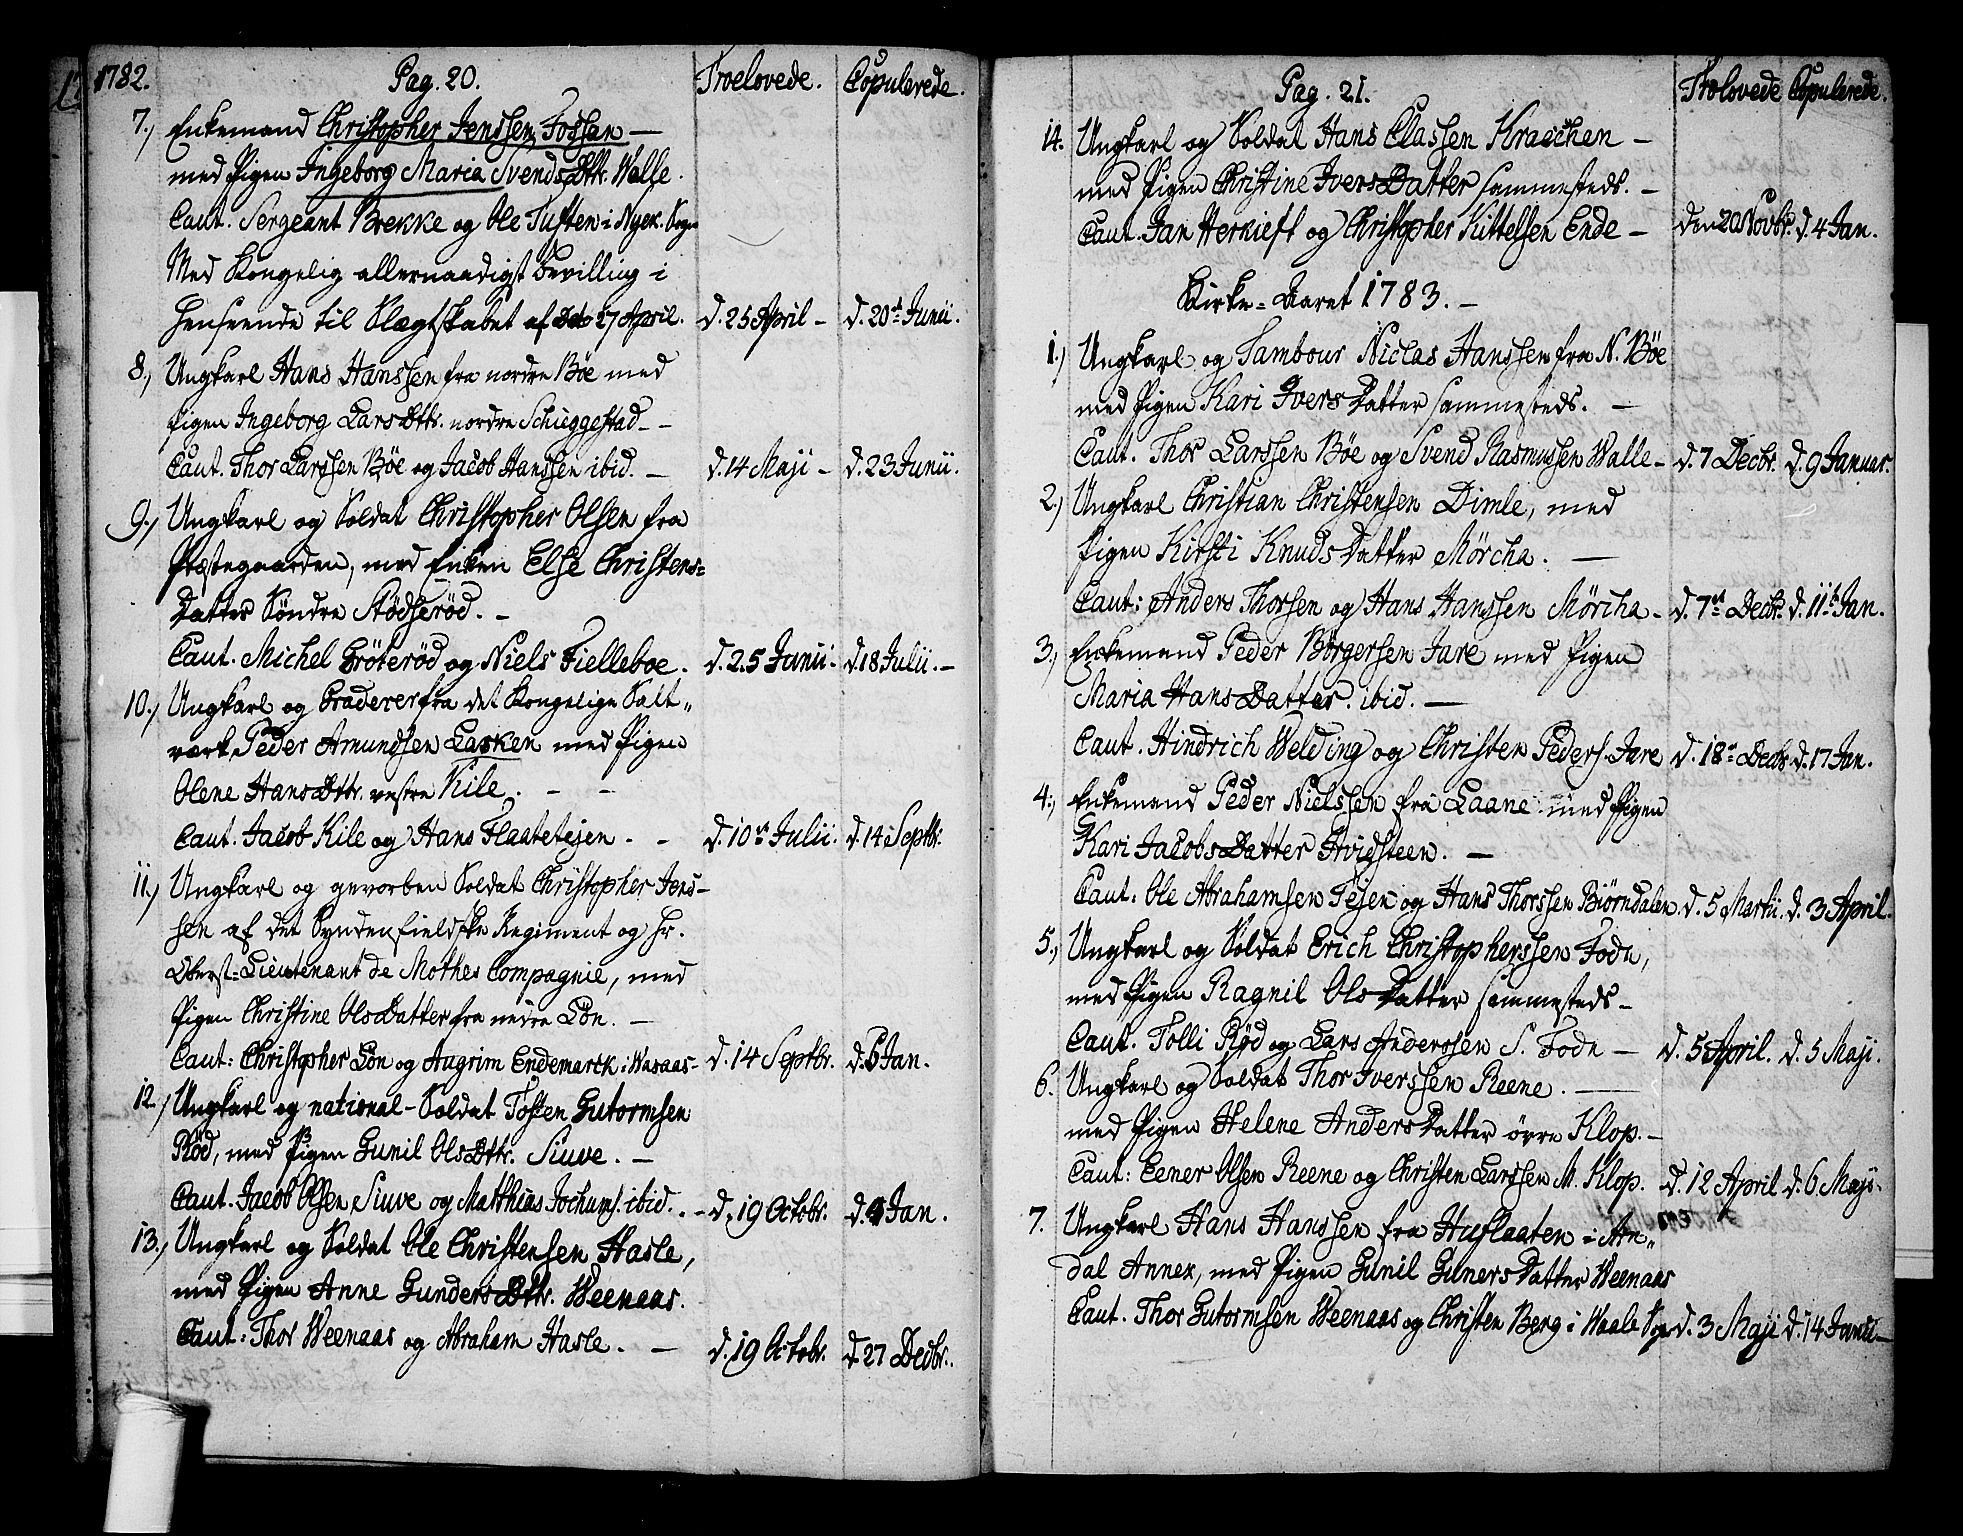 1782.
Pag. 20.
Troelovede. Copulerede.
7.) Enkemand Christopher Jenssen Fossan —
med Pigen Ingeborg Maria SvendsDttr. Walle.
Caut. Sergeant Brekke og Ole Tuften i Nyek. Sogn
Med Kongelig allernaadigst bevilling i
henseende til Slægtskabet af 27 April. d. 25 April – d. 20de Junii.
8.) Ungkarl Hans Hanssen fra nordre Böe med
Pigen Ingeborg LarsDttr. nordre Schieggestad. –
Caut. Thor Larssen Böe og Jacob Hanssen ibid. — d. 14 Maji – d. 23 Junii.
9.) Ungkarl og Soldat Christopher Olsen fra
Præstegaarden, med Enken Else Christens=
Datter Söndre Stödseröd. –
Caut. Michel Gröteröd og Niels Fielleboe. d. 25 Junii. d. 18 Julii. –
10.) Ungkarl og Graderer fra det Kongelige Salt„
værk, Peder Amundsen Lasken med Pigen
Olene HansDttr. vestre Kile. – –
Caut. Jacob Kile og Hans Flaatetejen. – d. 10de Julii. d. 14 Septbr.
11.) Ungkarl og gevorben Soldat Christopher Jens–
sen af det Syndenfieldske Regiment og Hr.
Oberst=Lieutenant de Mothes Compagnie, med
Pigen Christine OlsDatter fra nedre Lön. —
Caut: Christopher Lön og Augrim Endemarck i Wasaas– d. 14 Septbr. d. 6 Jan.
12.) Ungkarl og national–Soldat Tosten Gutormsen
Röd, med Pigen Gunil OlsDttr. Siuve. —
Caut. Jacob Olsen Siuve og Matthias Jochums. ibid. – d. 19 Octobr. d. 4 Jan.
13.) Ungkarl og Soldat Ole Christensen Hasle,
med Pigen Anne GundersDttr. Weenaas.
Caut: Thor Weenaas og Abraham Hasle. — d. 19 Octobr. d. 27 Decbr.
Pag. 21.
Trolovede Copulerede.
14. Ungkarl og Soldat Hans Classen Kraschen –
med Pigen Christine IversDatter sammesteds. –
Caut. Jan Herkieft og Christopher Kittelsen Ende – den 20 Novbr. d. 4 Jan.
Kirke=Aaret 1783. –
1.) Ungkarl og Tambour Niclas Hanssen fra N. Böe
med Pigen Kari IversDatter sammesteds. —
Caut. Thor Larssen Böe og Svend Rasmussen Walle – d. 7 Decbr. d. 9 Januar.
2.) Ungkarl Christian Christensen Dimle, med
Pigen Kirsti KnudsDatter Mörcha. —
Caut: Anders Thorsen og Hans Hanssen Mörcha – d. 7de Decbr. d. 11te Jan.
3.) Enkemand Peder Börgersen Jare med Pigen
Maria HansDatter ibid. —
Caut. Hindrich Welding og Christen Peders. Jare d. 18de Decbr. d. 17 Jan.
4.) Enkemand Peder Nielssen fra Laane med Pigen
Kari JacobsDatter Hvidsteen. —
Caut: Ole Abrahamsen Tejen og Hans Thorssen Biörndalen. d. 5 Martii. d. 3 April.
5.) Ungkarl og Soldat Erich Christopherssen Fodn,
med Pigen Ragnil OlsDatter sammesteds –
Caut. Tolli Röd og Lars Anderssen S. Fodn – d. 5 April. d. 5 Maji.
6. Ungkarl og Soldat Thor Iverssen Reene. —
med Pigen Helene AndersDatter övre Klop. –
Caut: Eener Olsen Reene og Christen Larssen M. Klop. d. 12 April d. 6 Maji.
7. Ungkarl Hans Hanssen fra Huflaaten i An„
dal Annex, med Pigen Gunil GunersDatter Weenaas
Caut. Thor Gutormsen Weenaas og Christen Berg i Waale Sogn d. 3 Maji d. 14 Junii –